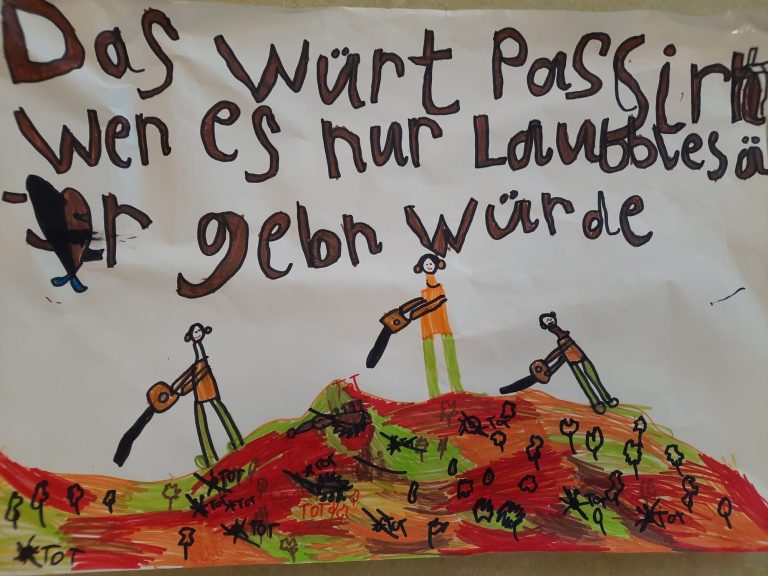 Das Würt Passirn
wen es nur Laubblesä
er gebn würde
TOT
TOT
TOT
TOT
TOT
TOT
TOT
TOT
TOT
TOT
TOT
TOT